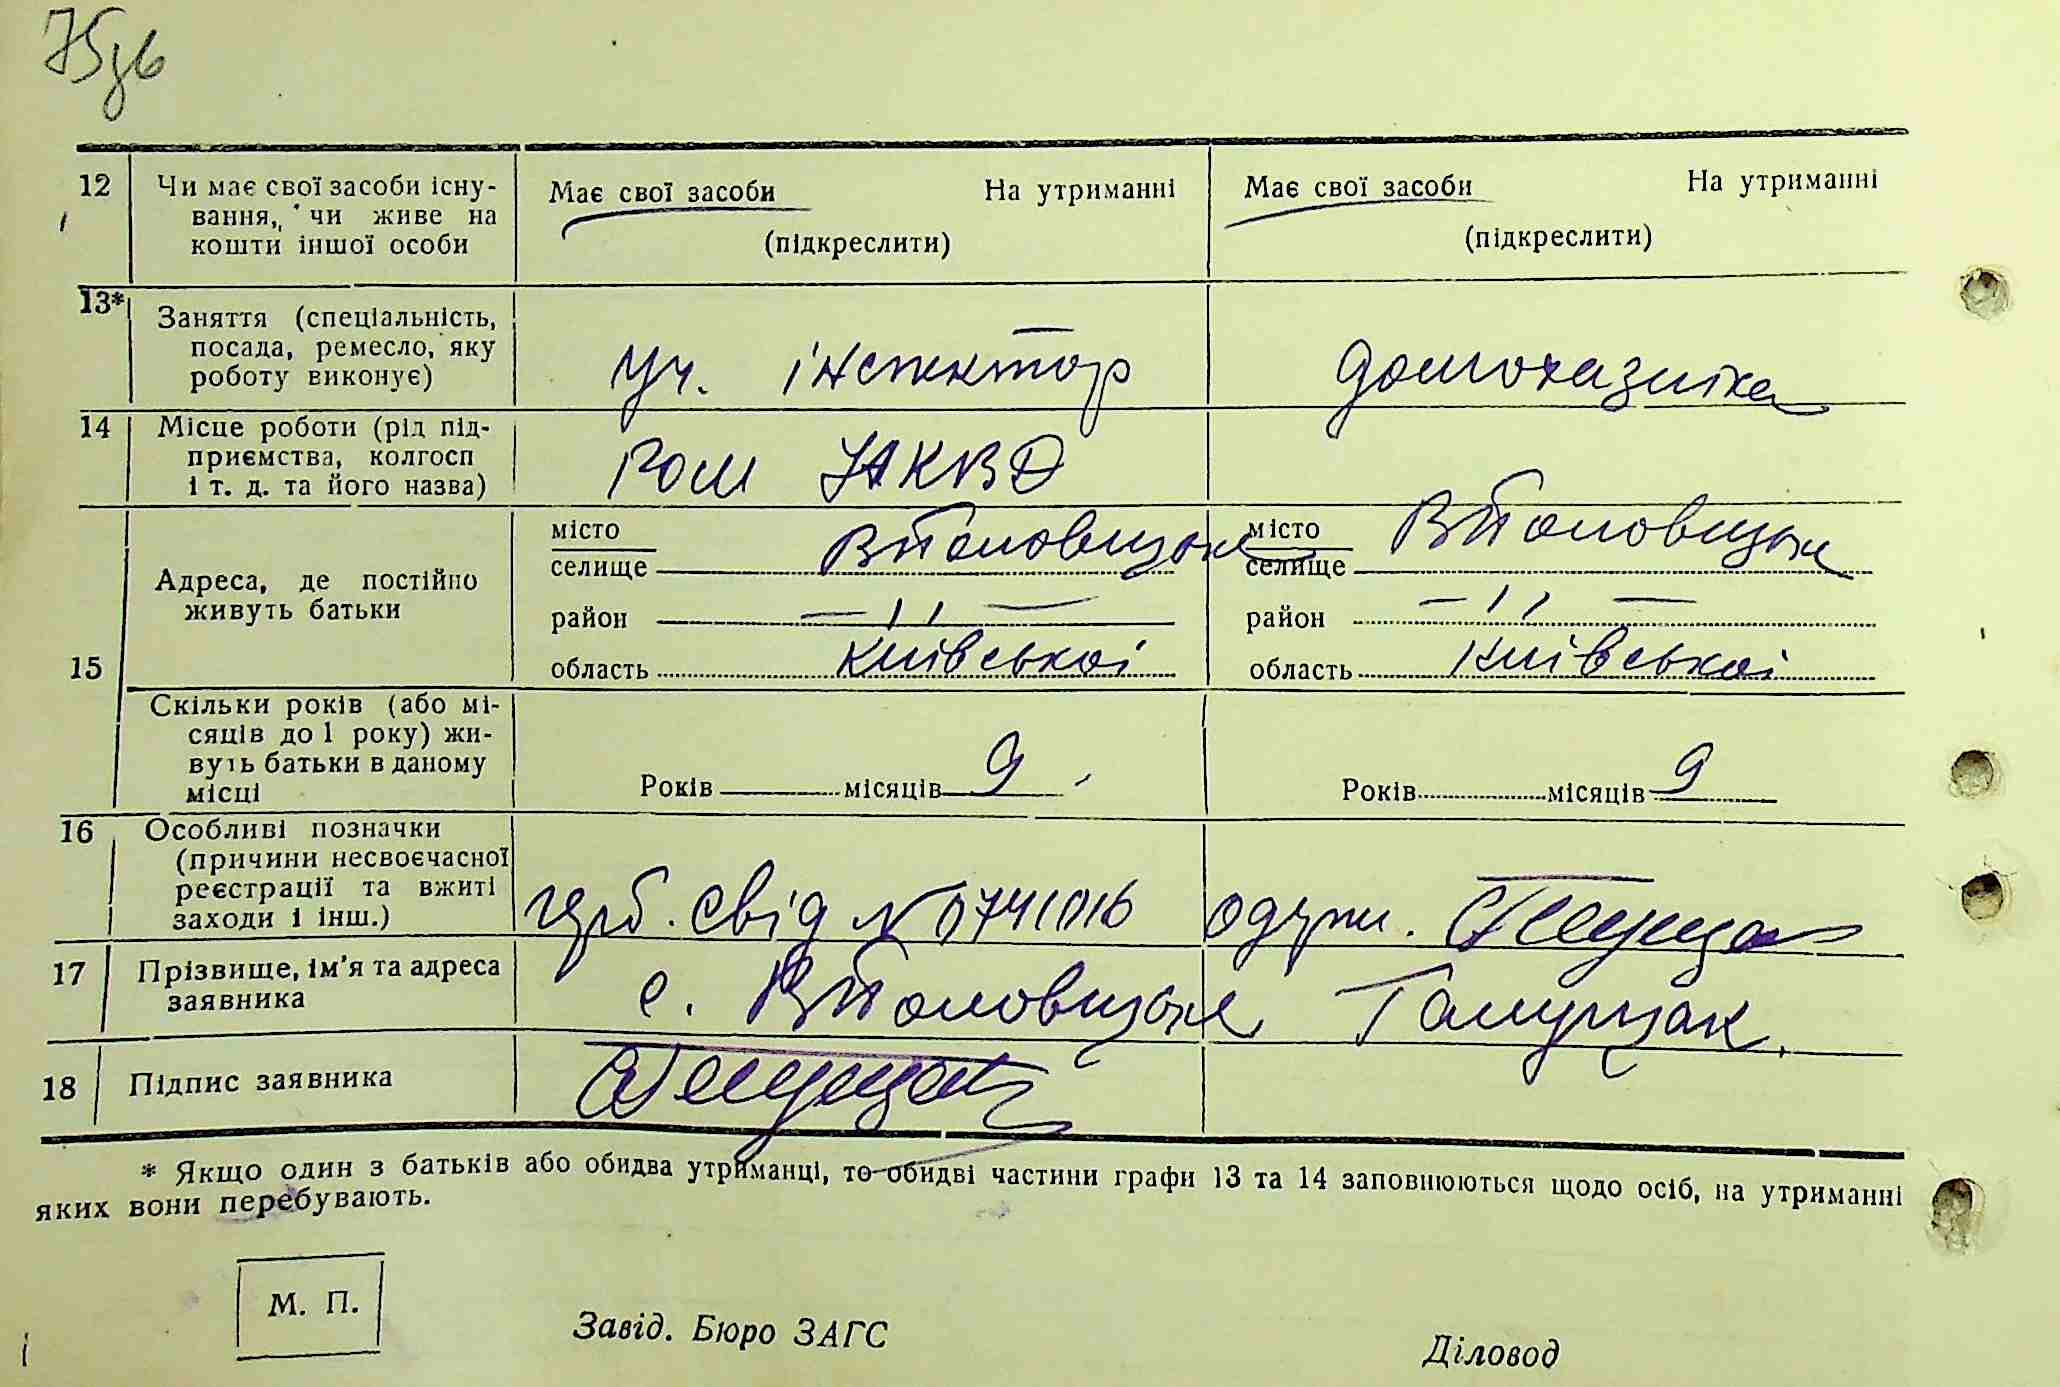 75зв
12 Чи має свої засоби існу- Має свої засоби На утриманні Має свої засоби На утриманні
вання, чи живе на
кошти іншої особи (підкреслити) (підкреслити)
13* Заняття (спеціальність,
посада, ремесло, яку
роботу виконує) уч. інспектор домохазяйка
14 Місце роботи (рід під-
приємства, колгосп РОМ НКВД
і т. д. та його назва)
15 Адреса, де постійно
живуть батьки
місто В Половецьке місто В Половецьке
селище селище
район —〃— район —〃—
область Київської область Київської
Скільки років (або мі-
сяців до 1 року) жи-
вуть батьки в даному
місці Років місяців 9 Років місяців 9
16 Особливі позначки
(причини несвоєчасної
реєстрації та вжиті
заходи і інш.) герб. свід № 0741016 одерж.
17 Прізвище, ім'я та адреса
заявника с. В Половецьке
18 Підпис заявника
* Якщо один з батьків або обидва утриманці, то обидві частини графи 13 та 14 заповнюються щодо осіб, на утриманні
яких вони перебувають.
М. П.
Завід. Бюро ЗАГС Діловод